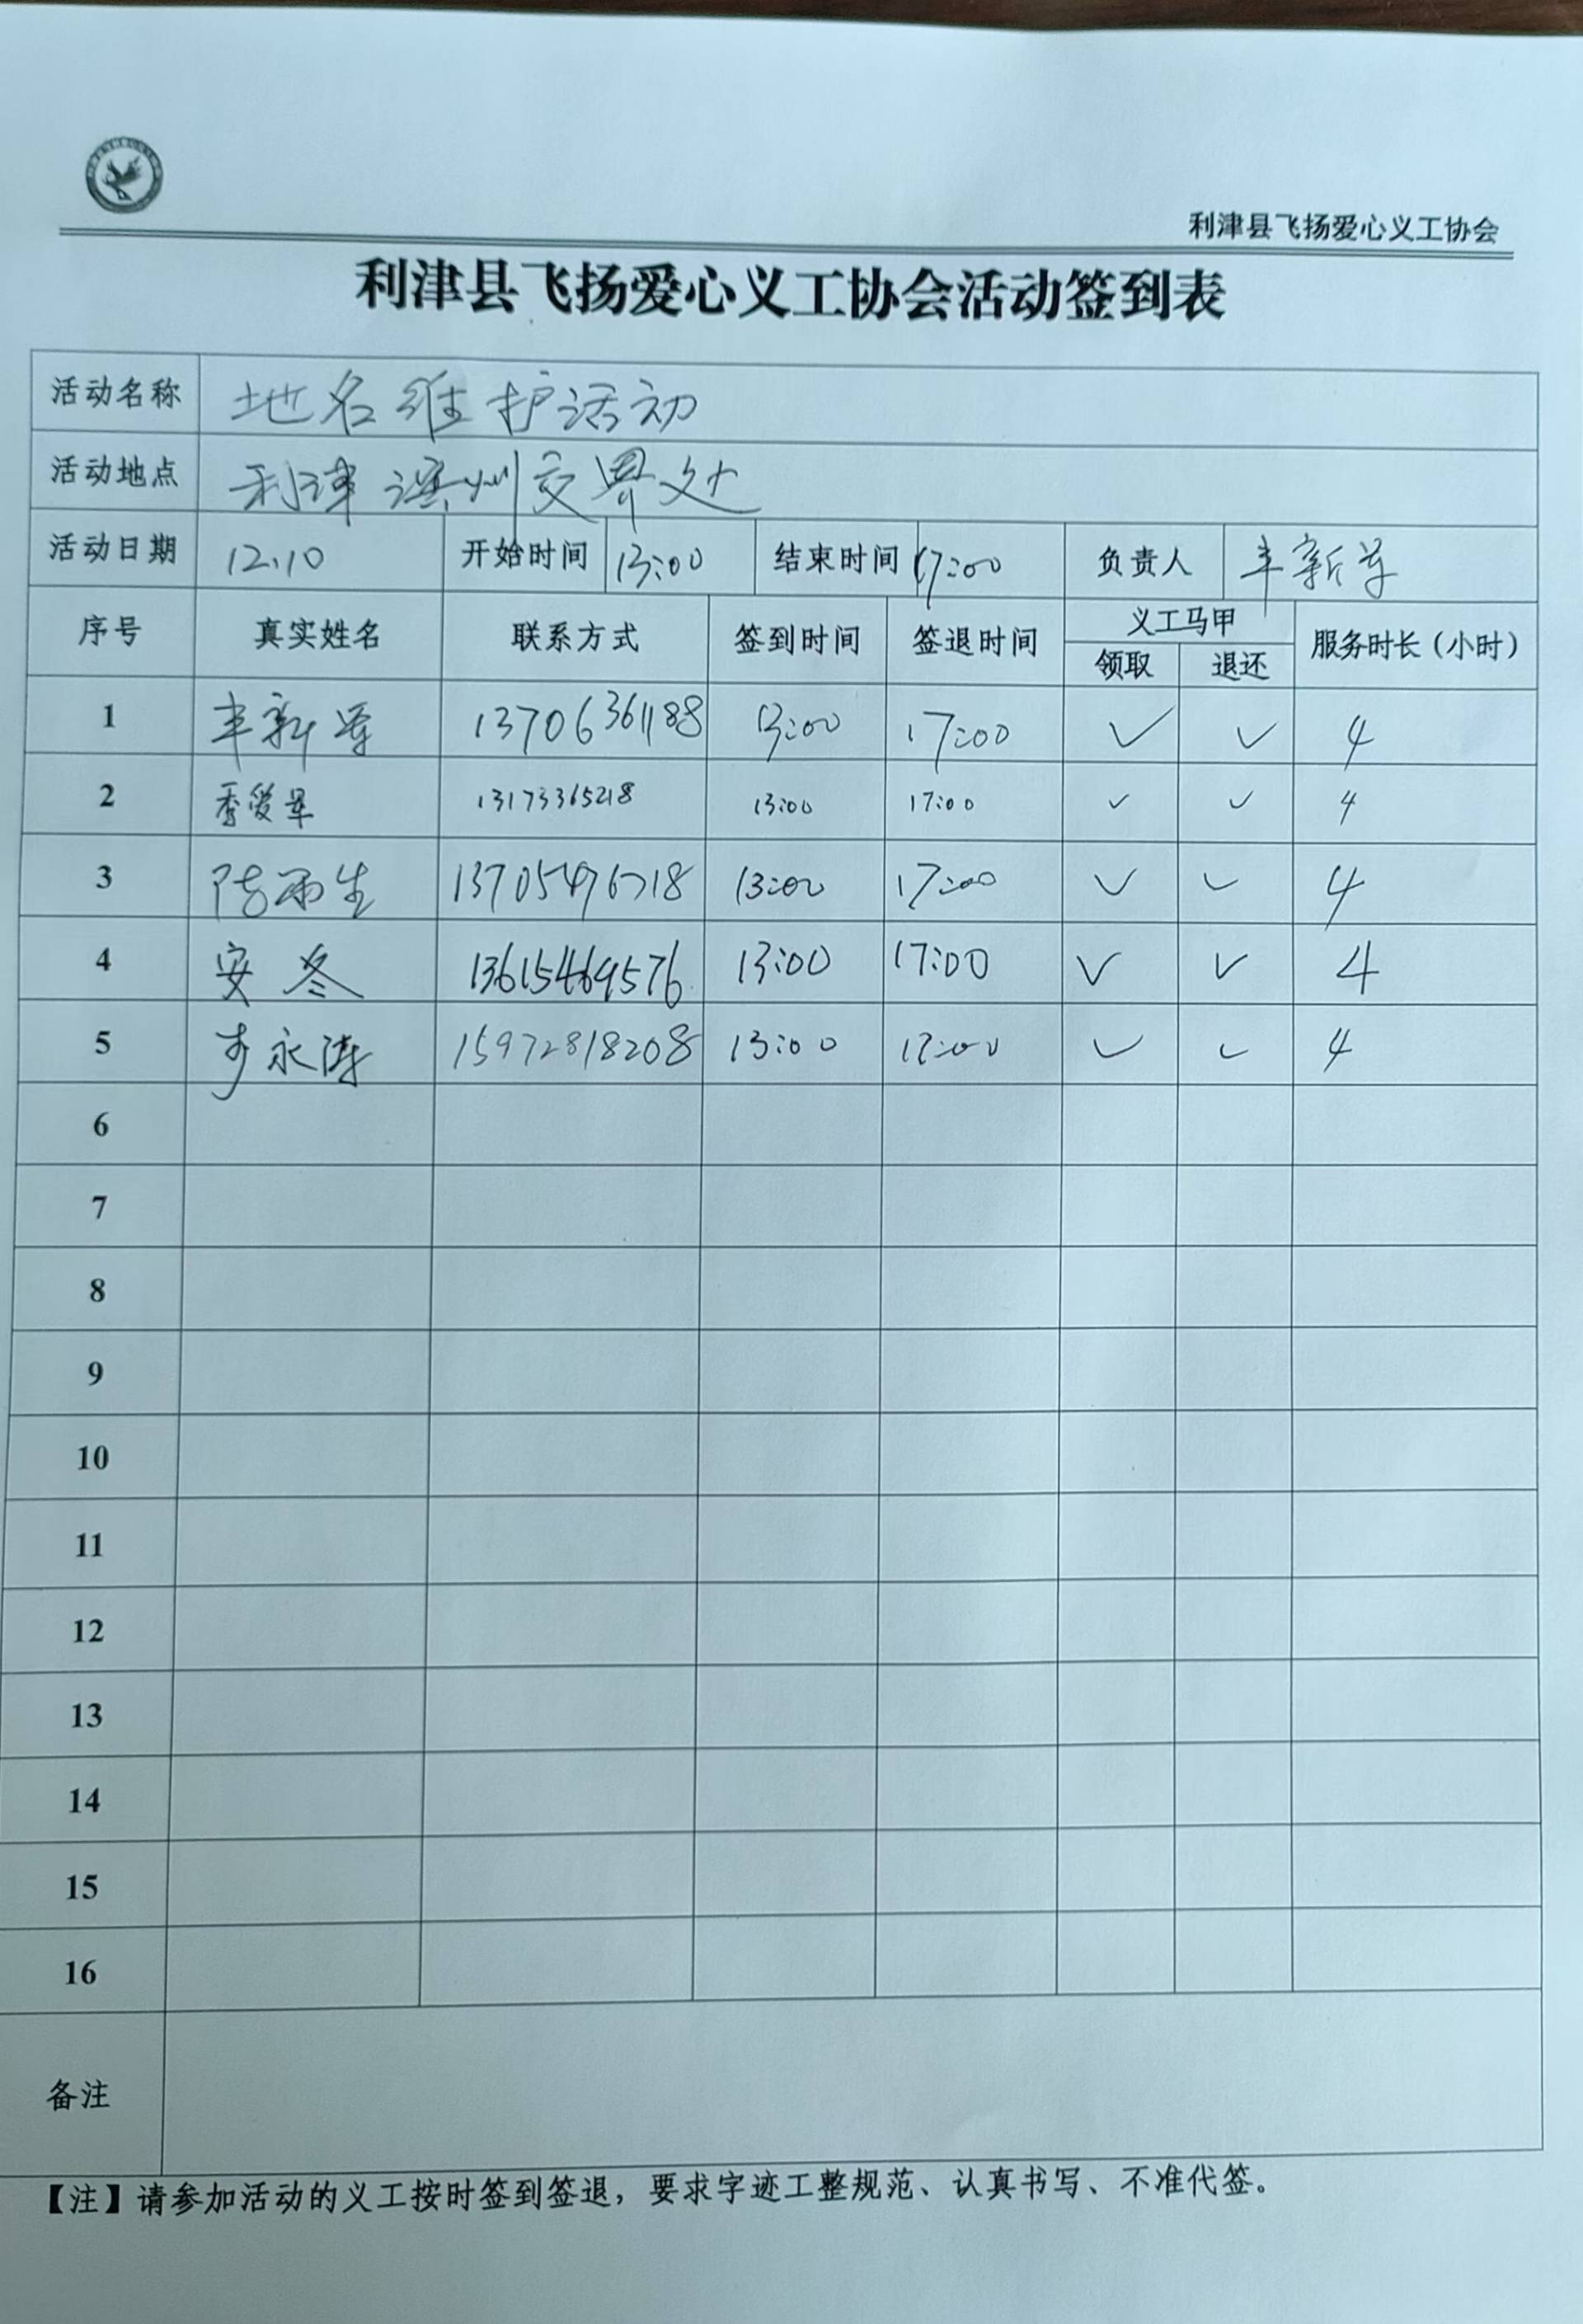 利津县飞扬爱心义工协会
利津县飞扬爱心义工协会活动签到表
活动名称 地名维护活动
活动地点 利津滨州交界处
活动日期 12.10 开始时间 13:00 结束时间 17:00 负责人 丰新军
序号 真实姓名 联系方式 签到时间 签退时间 义工马甲 服务时长(小时)
领取 退还
1 丰新军 13706361188 13:00 17:00 ✓ ✓ 4
2 季爱军 13173365218 13:00 17:00 ✓ ✓ 4
3 雨生 13705496718 13:00 17:00 ✓ ✓ 4
4 安冬 13615469576 13:00 17:00 ✓ ✓ 4
5 永涛 15972818208 13:00 17:00 ✓ ✓ 4
6
7
8
9
10
11
12
13
14
15
16
备注
【注】请参加活动的义工按时签到签退，要求字迹工整规范、认真书写、不准代签。